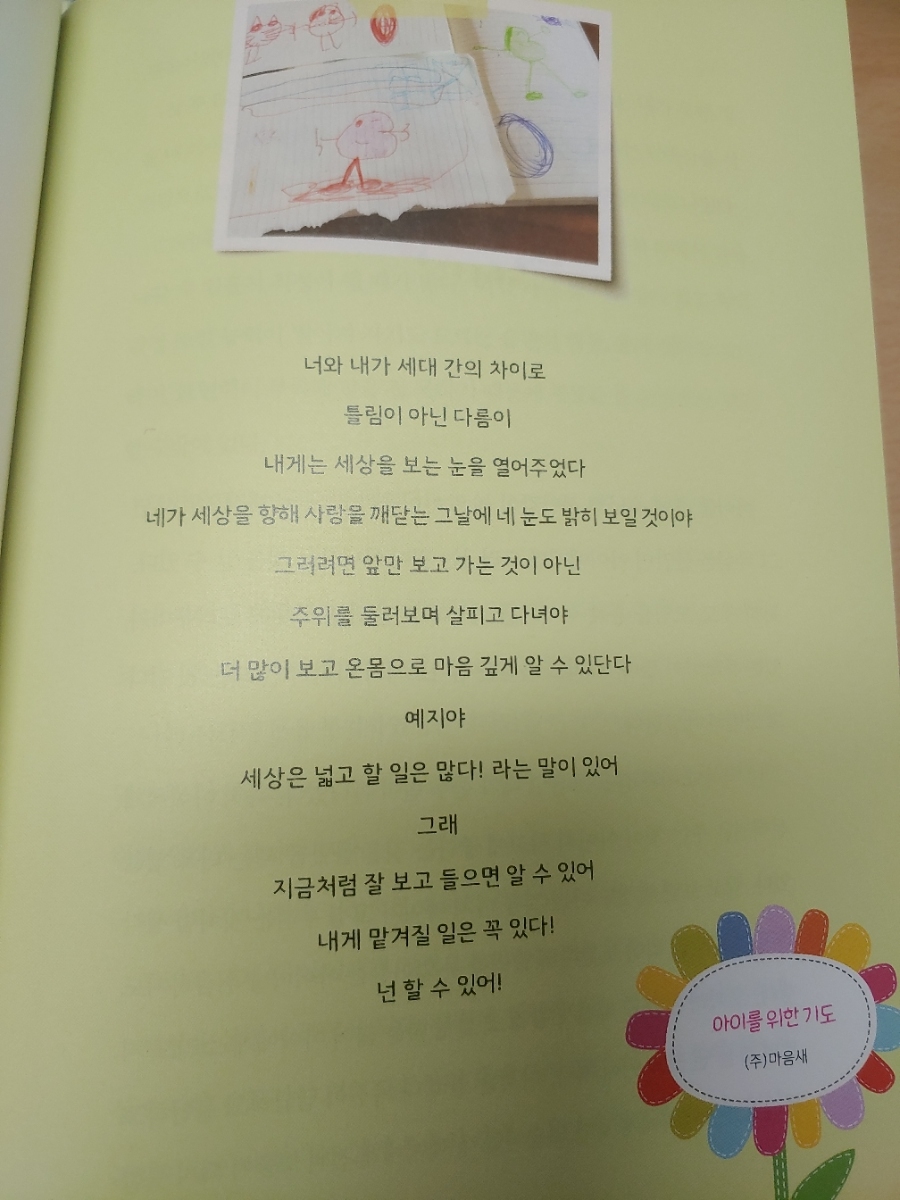 너와 내가 세대 간의 차이로
틀림이 아닌 다름이
내게는 세상을 보는 눈을 열어주었다
네가 세상을 향해 사랑을 깨닫는 그날에 네 눈도 밝히 보일 것이야
그러려면 앞만 보고 가는 것이 아닌
주위를 둘러보며 살피고 다녀야
더 많이 보고 온몸으로 마음 깊게 알 수 있단다
예지야
세상은 넓고 할 일은 많다! 라는 말이 있어
그래
지금처럼 잘 보고 들으면 알 수 있어
내게 맡겨질 일은 꼭 있다!
넌 할 수 있어!
아이를 위한 기도
(주)마음새